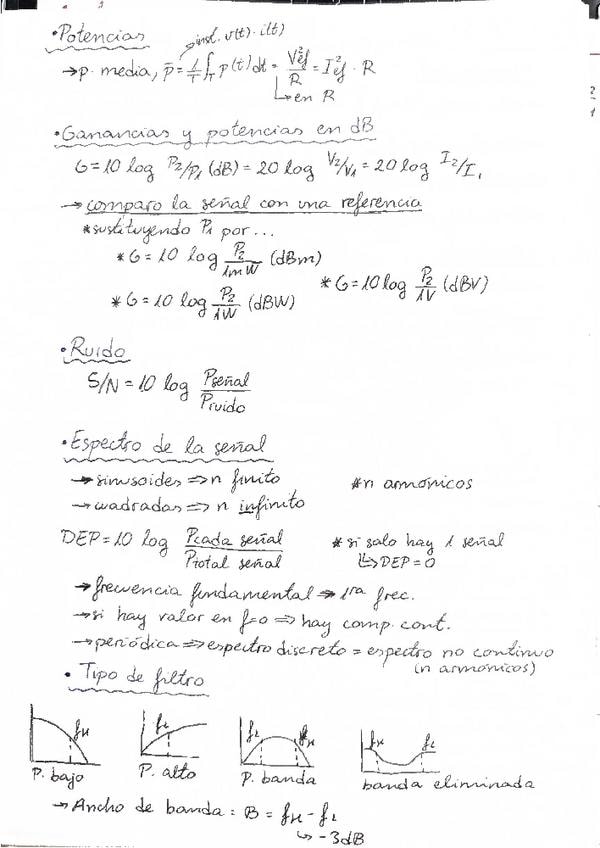 • Potencias
inst. v(t)·i(t)
→ p. media, p̄ = 1/T ∫_T p(t) dt = V²ef/R = I²ef · R
↳ en R
• Ganancias y potencias en dB
G = 10 log P2/P1 (dB) = 20 log V2/V1 = 20 log I2/I1
→ comparo la señal con una referencia
* sustituyendo P1 por...
* G = 10 log P2/1mW (dBm)
* G = 10 log P2/1V (dBV)
* G = 10 log P2/1W (dBW)
• Ruido
S/N = 10 log Pseñal/Pruido
• Espectro de la señal
→ sinusoides ⇒ n finito
* n armónicos
→ cuadradas ⇒ n infinito
DEP = 10 log Pcada señal/Ptotal señal
* si solo hay 1 señal
↳ DEP = 0
→ frecuencia fundamental → 1ra frec.
→ si hay valor en f=0 ⇒ hay comp. cont.
→ periódica ⇒ espectro discreto = espectro no continuo
(n armónicos)
• Tipo de filtro
fH
fL
fL fH
fH fL
P. bajo
P. alto
P. banda
banda eliminada
→ Ancho de banda: B = fH - fL
↳ -3dB